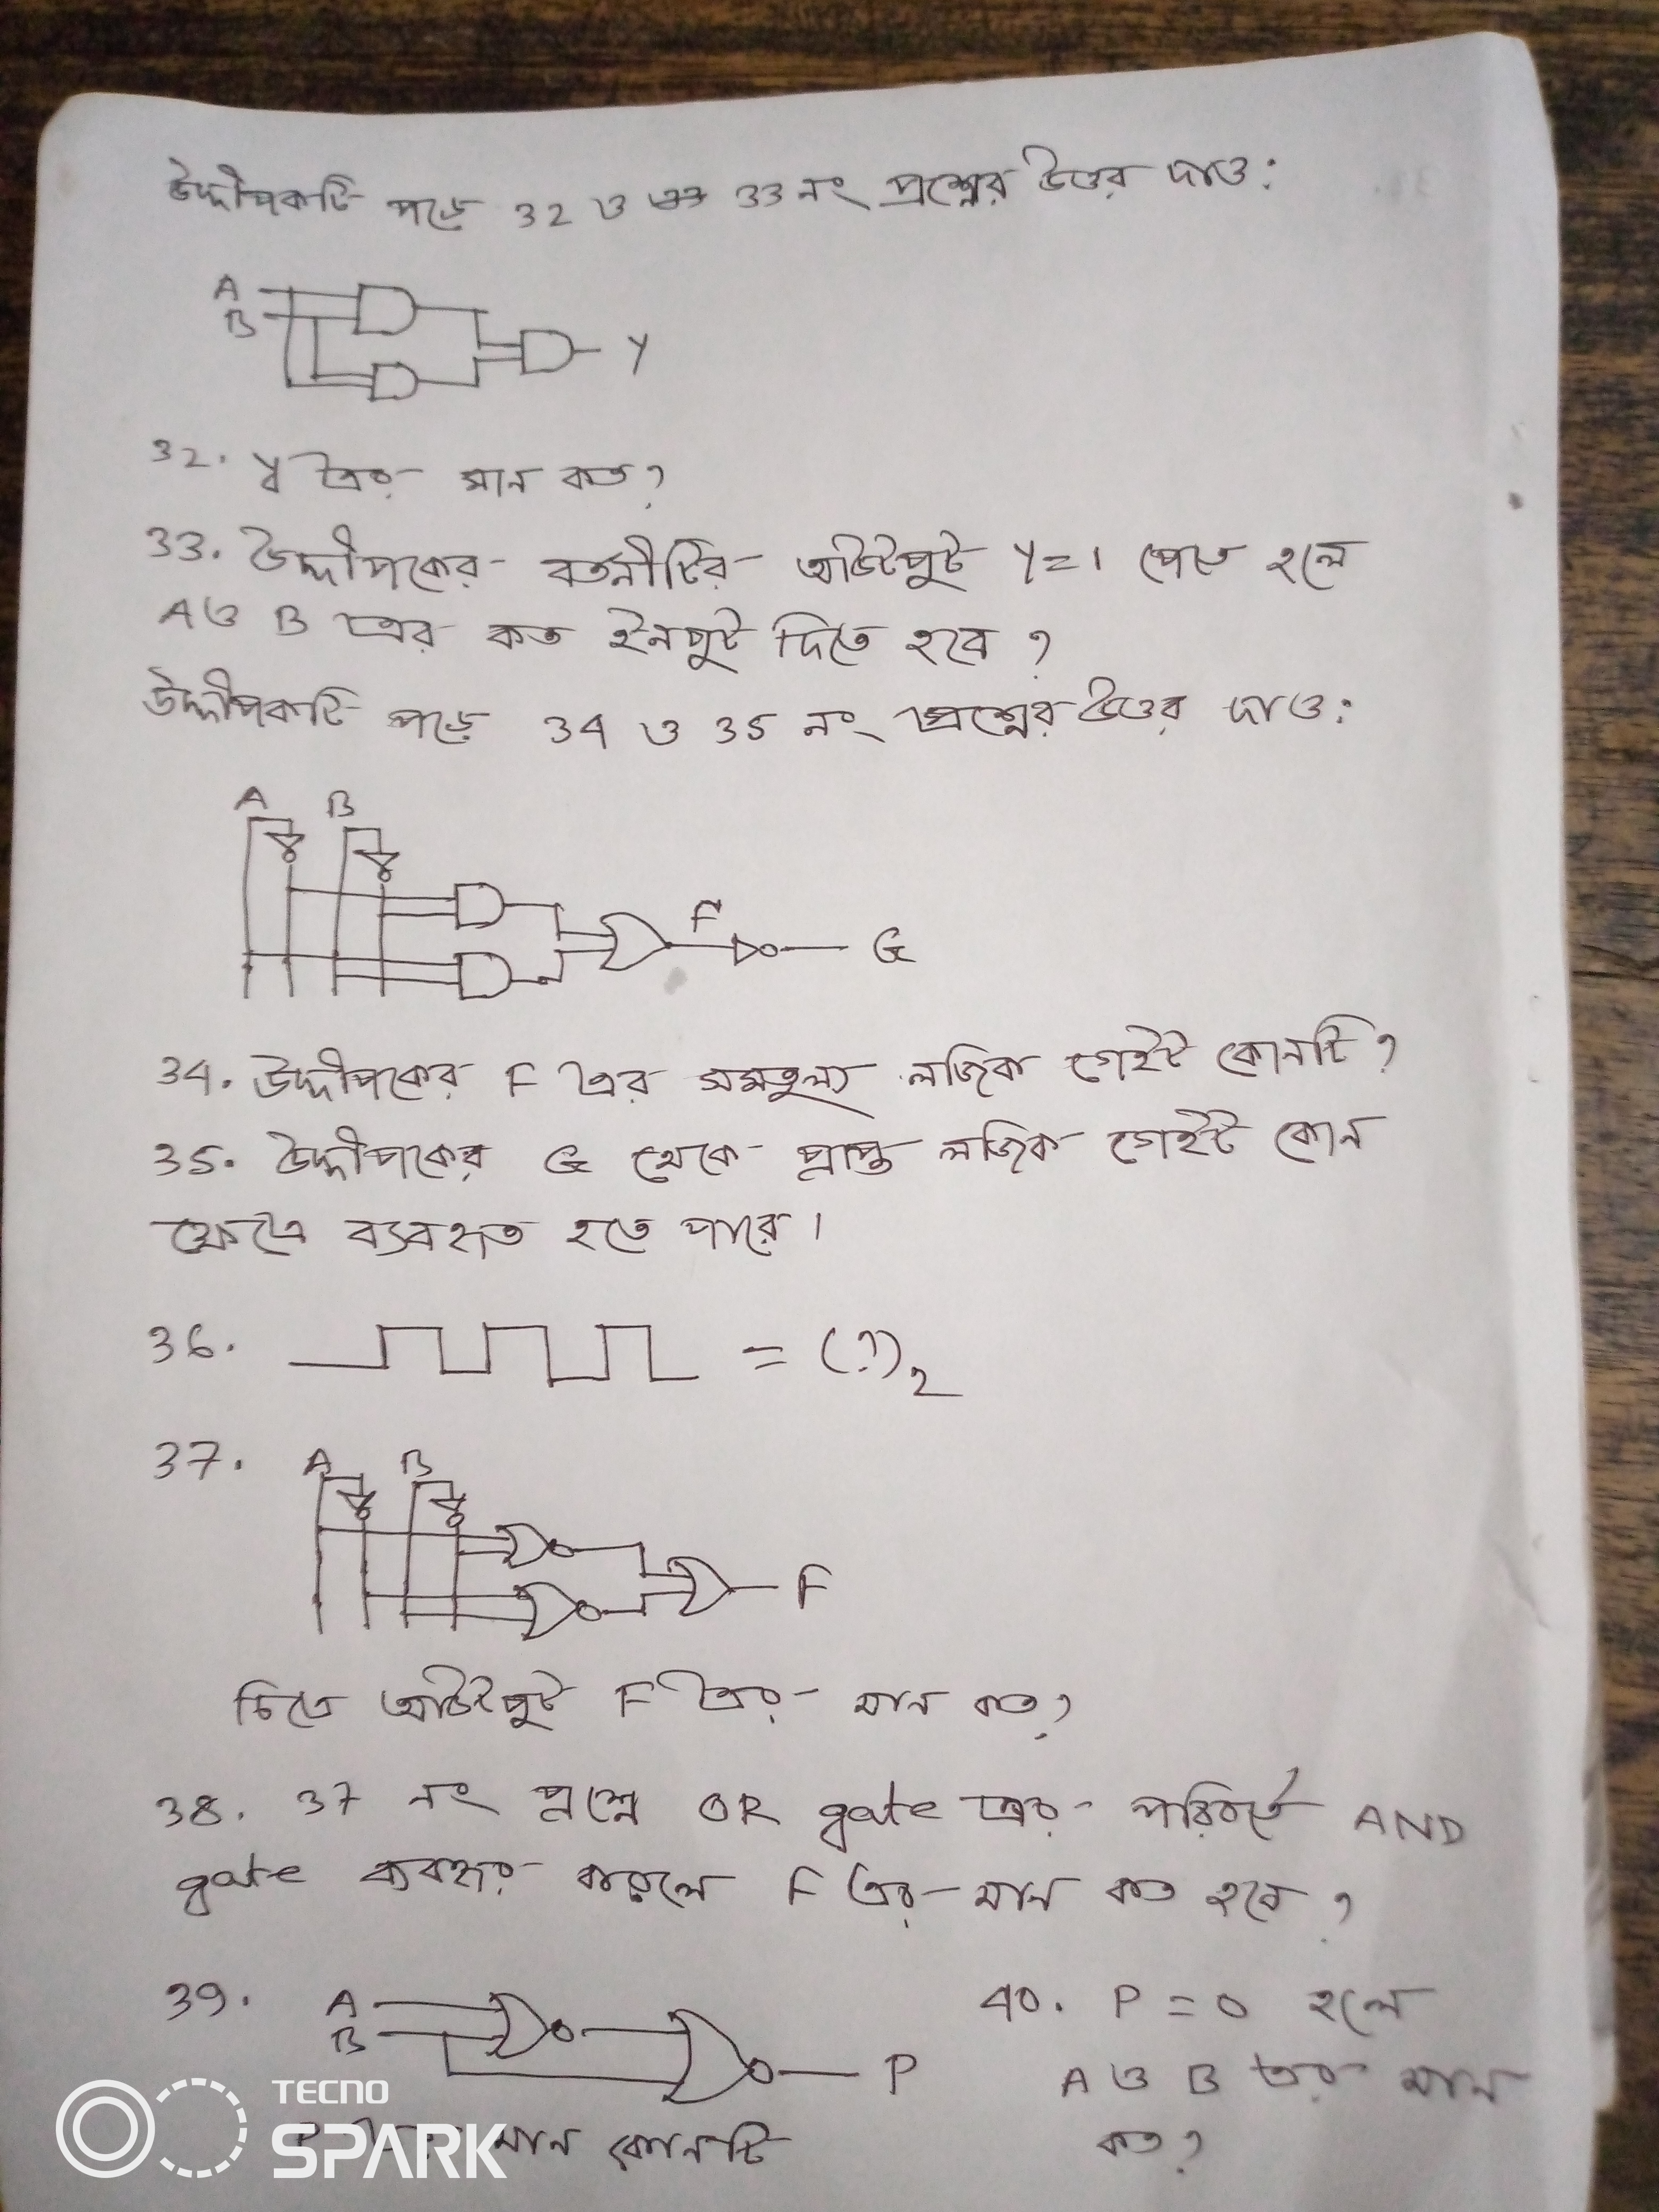 উদ্দীপকটি পড়ে 32 ও 33 নং প্রশ্নের উত্তর দাও:
A
B
Y
32. Y এর মান কত?
33. উদ্দীপকের বর্তনীটির আউটপুট Y=1 পেতে হলে
A ও B এর কত ইনপুট দিতে হবে?
উদ্দীপকটি পড়ে 34 ও 35 নং প্রশ্নের উত্তর দাও:
A B
F
G
34. উদ্দীপকের F এর সমতুল্য লজিক গেইট কোনটি?
35. উদ্দীপকের G থেকে প্রাপ্ত লজিক গেইট কোন
ক্ষেত্রে ব্যবহৃত হতে পারে।
36. = (?)₂
37. A B
F
চিত্রে আউটপুট F এর মান কত?
38. 37 নং প্রশ্নে OR gate এর পরিবর্তে AND
gate ব্যবহার করলে F এর মান কত হবে?
39. A
B
P
এর মান কোনটি
40. P = 0 হলে
A ও B এর মান
কত?
TECNO
SPARK